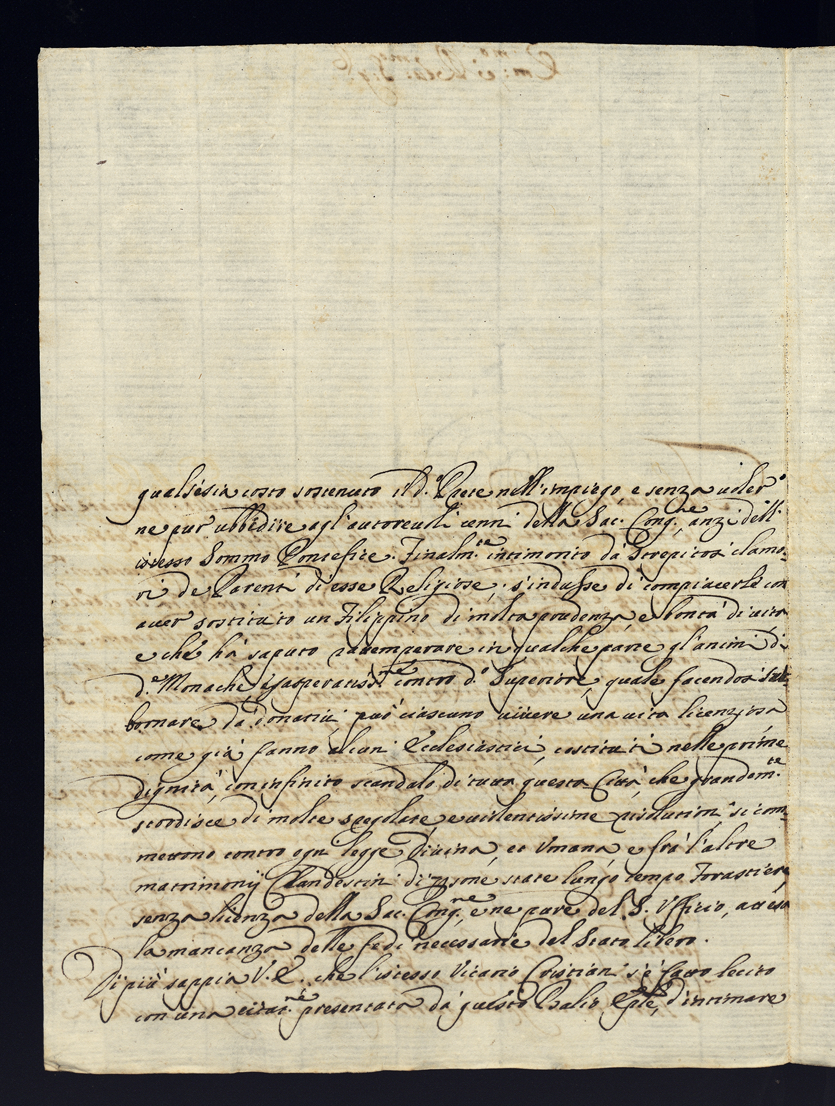 qualsisia costo sostenuto il d.º Prete nell'impiego, e senza voler'
ne pur ubbidire agl'autorevoli cenni della Sac. Cong.ne, anzi dell'
istesso Sommo Pontefice. Finalm.te intimorito da strepitosi clamo-
ri de Parenti di esse Religiose, s'indusse di compiacerle con
aver sostituito un Filippino di molta prudenza, e bontà di vita
e che hà saputo rattemperare in qualche parte gl'animi di
d.e Monache esasperatiss.e contro d.º Superiore, quale facendosi su-
bornare da donativi, può ciascuno vivere una vita licenziosa
come già fanno alcuni Ecclesiastici, costituiti nelle prime
dignità, con infinito scandalo di tutta questa Città, che grandem.te
stordisce di molte sregolate, e violentissime risolutioni si com-
mettono contro ogni legge Divina, et Umana e frà l'altre
matrimonij Clandestini di persone state lungo tempo Forastiere,
senza licenza della Sac. Cong.ne, e ne pure del S. Ufficio, attesa
la mancanza delle fedi necessarie del Stato libero.
Di più sappia V. E. che l'istesso Vicario Cristiani s'è fatto lecito
con una citat.ne presentata da questo Balio Eple, d'intimare